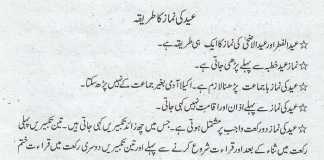 عید کی نماز کا طریقہ
☆ عید الفطر اور عید الاضحیٰ کی نماز کا ایک ہی طریقہ ہے۔
☆ نماز عید خطبہ سے پہلے پڑھی جاتی ہے۔
☆ عید کی نماز باجماعت پڑھنا لازم ہے۔ اکیلا آدمی بغیر جماعت کے نہیں پڑھ سکتا۔
☆ عید کی نماز سے پہلے اذان اور اقامت نہیں کہی جاتی۔
☆ عید کی نماز دو رکعت واجب پر مشتمل ہوتی ہے۔ جس میں چھ زائد تکبیریں کہی جاتی ہیں۔ تین تکبیریں پہلی
رکعت میں ثناء کے بعد اور قراءت شروع کرنے سے پہلے اور تین تکبیریں دوسری رکعت میں قراءت ختم